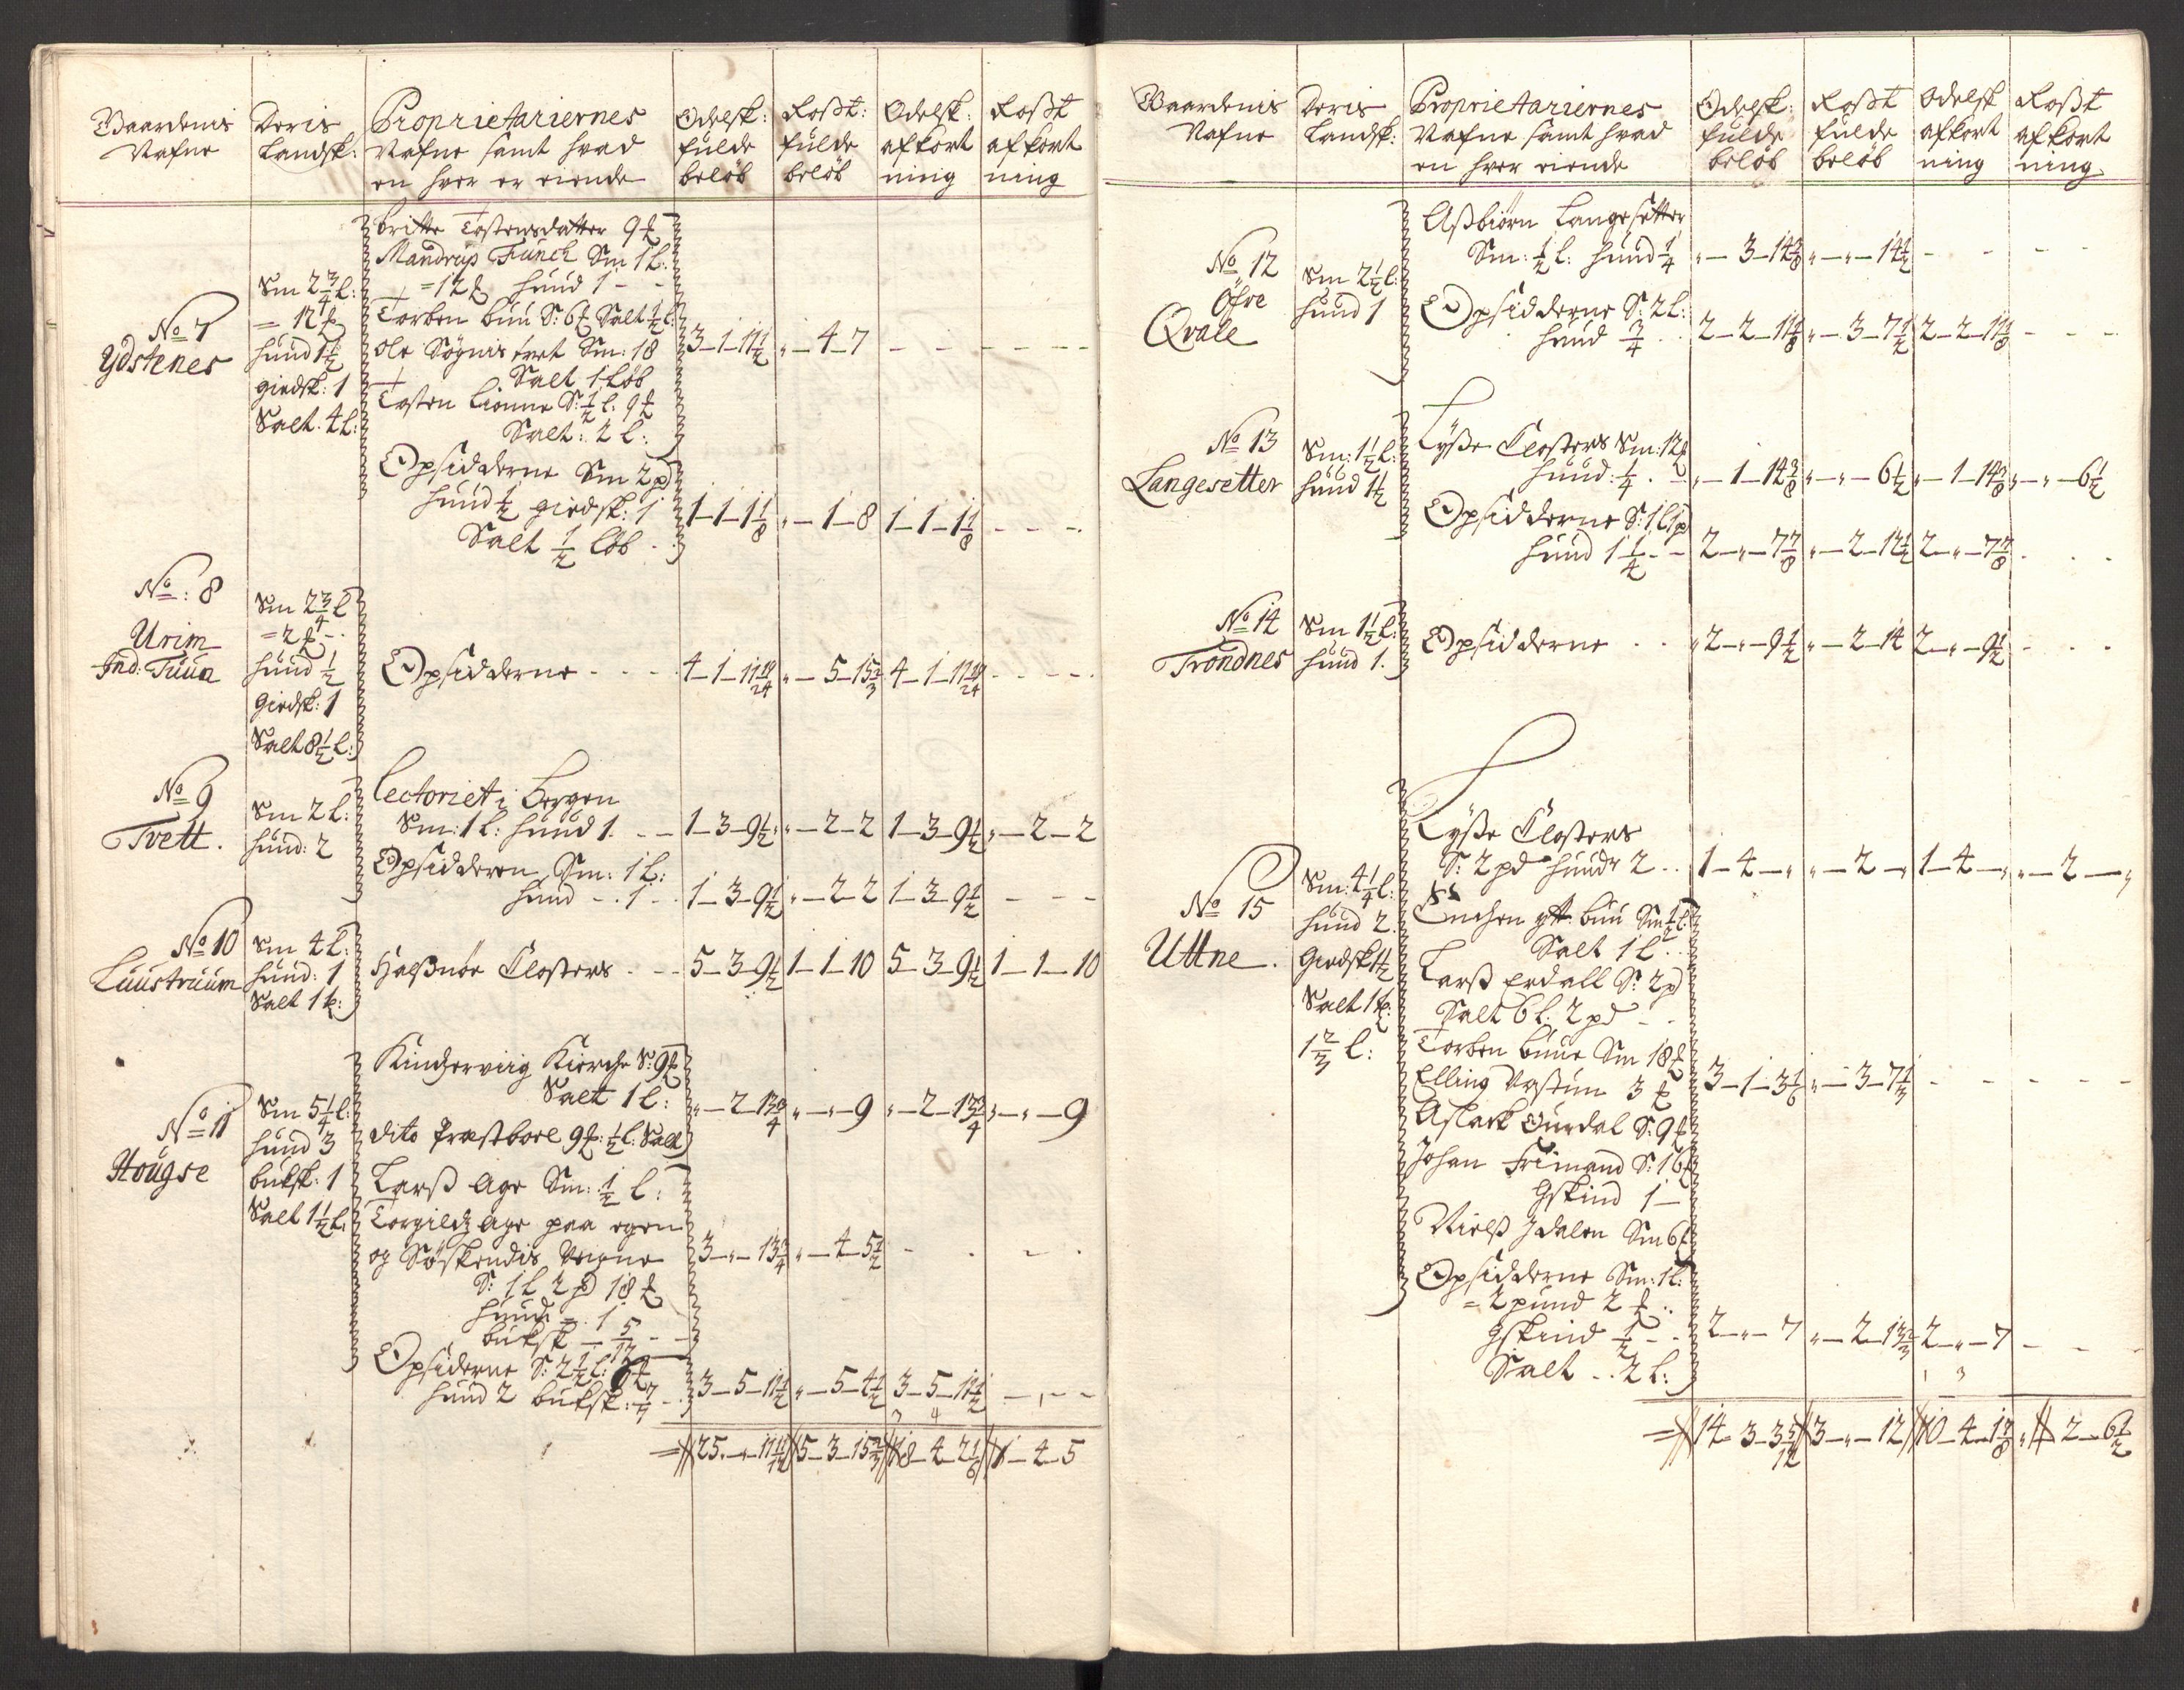 Gaardenis Nafne
Deris Landsk:
Proprietariernes Nafne samt hvad en hver er eiende
Odelsk: fulde beløb
Roßt: fulde beløb
Odelsk: afkortning
Roßt afkortning
No 7
Ydstenes
Sm 2 3/4 l:
= 12
hund 1 1/2
giedsk: 1
Salt 4 l:
Britte Tostensdatter 9
Mandrup Funch Sm 1 l:
= 12 hund 1 -
Torben buu S: 6 Salt 1/2 l:
Ole Sognis Sm: 18
Salt 1 løb
Tosten Lionne S: 1/2 l: 9
Salt: 2 l:
3-1-11 1/2 „-4-7 - - - - -
Opsidderne Sm 2 pd
hund 1/2 giedsk: 1
Salt 1/2 løb
1-1-1 1/8 „-1-8 1-1-1 1/8 - - -
No: 8
Urim
Ind: Tuua
Sm 2 3/4 l
= 2
hund 1/2
Giedsk: 1
Salt 8 1/2 l:
Opsidderne - - - - 4-1-11 19/24 „-5-15 2/3 4-1-11 19/24 - - - -
No 9
Tvett.
Sm 2 l:
hund: 2
Lectoriet i Bergen
Sm: 1 l: hund 1. - - 1-3-9 1/2 „-2-2 1-3-9 1/2 „-2-2
Opsidderen Sm: 1 l:
hund - . 1 - . 1-3-9 1/2 „-2-2 1-3-9 1/2 - - -
No 10
Luustruum
Sm 4 l:
hund: 1
Salt 1
Halßnøe Closters - - - 5-3-9 1/2 1-1-10 5-3-9 1/2 1-1-10
No 11
Hougse
Sm 5 1/4 l:
hund 3
buksk: 1
Salt 1 1/2 l:
Kindzerviig Kierche S: 9
Salt 1 l:
dito Præstboel 9: 1/2 l: Salt
„-2-13 3/4 „-„-9 „-2-13 3/4 „-„-9
Larß Age Sm: 1/2 l:
Torgildz Age paa egen
og Søskendis Veigne
S: 1 l 2 pd 18
hund - . 1
buksk - 5/12 - -
3-„-13 3/4 „-4-5 1/2 - - - -
Opsiderne S: 2 1/2 l: 6
hund 2 buksk: 7/ -
3-5-11 1/2 „-5-4 1/2 3-5-11 1/2 - - -
= 25-„-11 11/12 5-3-15 2/3 18-4-2 1/6 1-4-5
Gaardenis Nafne
Deris Landsk:
Proprietariernes Nafne samt hvad en hver eiende
Odelsk: fulde beløb
Roßt fulde beløb
Odelsk afkortning
Roßt afkortning
No 12
Øfre
Qvale
Sm 2 1/2 l:
hund 1
Aßbiørn Langesetter
Sm: 1/2 l: hund 1/4 „-3-14 3/8 „-„-14 1/2 - - - -
Opsidderne S: 2 l:
hund 3/4 - . 2-2-11 1/8 „-3-7 1/2 2-2-11 1/8 - - -
No 13
Langesetter
Sm: 1 1/2 l:
hund 1 1/2
Lyße Closters Sm: 12
hund: 1/4 . - „-1-14 3/8 „-„-6 1/2 „-1-14 3/8 „-„-6 1/2
Opsidderne S: 1 l 1 pd
hund 1 1/4 - - 2-„-7 7/8 „-2-12 1/2 2-„-7 7/8 . . .
No 14
Trondnes
Sm 1 1/2 l:
hund 1.
Opsidderne . . 2-„-9 1/2 „-2-14 2-„-9 1/2 - - -
No 15
Uttne.
Sm: 4 1/4 l:
hund 2
Giedsk 1 1/2
Salt 1
1 2/3 l:
Lyße Closters
S: 2 pd hunde 2 . . 1-4-„ „-2-„ 1-4-„ „-2-„
Enchen buu Sm 1/2 l:
Salt 1 l:
Larß Erdall S: 2 pd
Salt 6 l: 2 pd - .
Torben buue Sm 18
Elling 3
Aslack Ourdal S: 9
Johan Friimand S: 16
Gskind 1 -
Nielß Jdalen Sm 6
3-1-3 1/6 „-3-7 1/3 - - - - -
Opsidderne Sm: 1 l:
= 2 pund 2 ..
Gskind 1/2 - .
Salt . . 2 l:
2-„-7 „-2-13 2/3 2-„-7 - - -
= 14-3-3 5/12 3-„-12 10-4-1 7/8 „-2-6 1/2